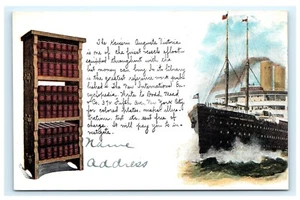 The Kaiserin Auguste Victoria
is one of the finest vessels afloat
equipped throughout with the
best money can buy. In its library
is the greatest reference work pub
lished to the New International En
cyclopædia. Write to Dodd, Mead
& Co. 372 Fifth Ave. New York City
for colored plates, maps, illust
rations, &c. sent free of
charge. It will pay you to in
vestigate.
Name
Address